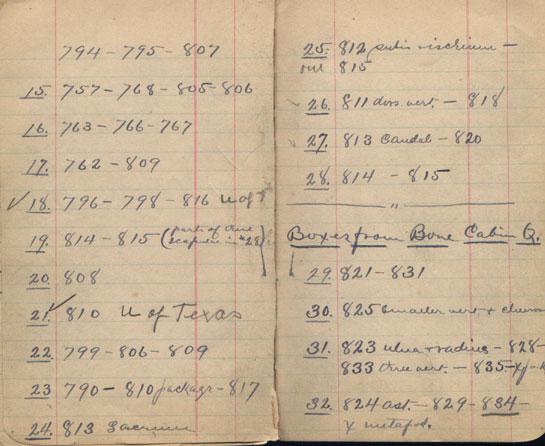 794 - 795 - 807
15. 757 - 768 - 805 - 806
16. 763 - 766 - 767
17. 762 - 809
✓ 18. 796 - 798 - 816 U of T
19. 814 - 815 (parts of one
scapula in #28)
20. 808
21. ✓ 810 U of Texas
22. 799 - 806 - 809
23 790 - 810 package - 817
24. 813 Sacrum
25. 812 pubis + ischium -
815
26. 811 dors. vert. - 818
27. 813 Caudal - 820
28. 814 - 815
"
Boxes from Bone Cabin Q.
29. 821 - 831
30. 825 smaller vert. +
31. 823 ulna + radius - 828 -
833 vert. - 835
32. 824 ast. - 829 - 834 -
metapod.